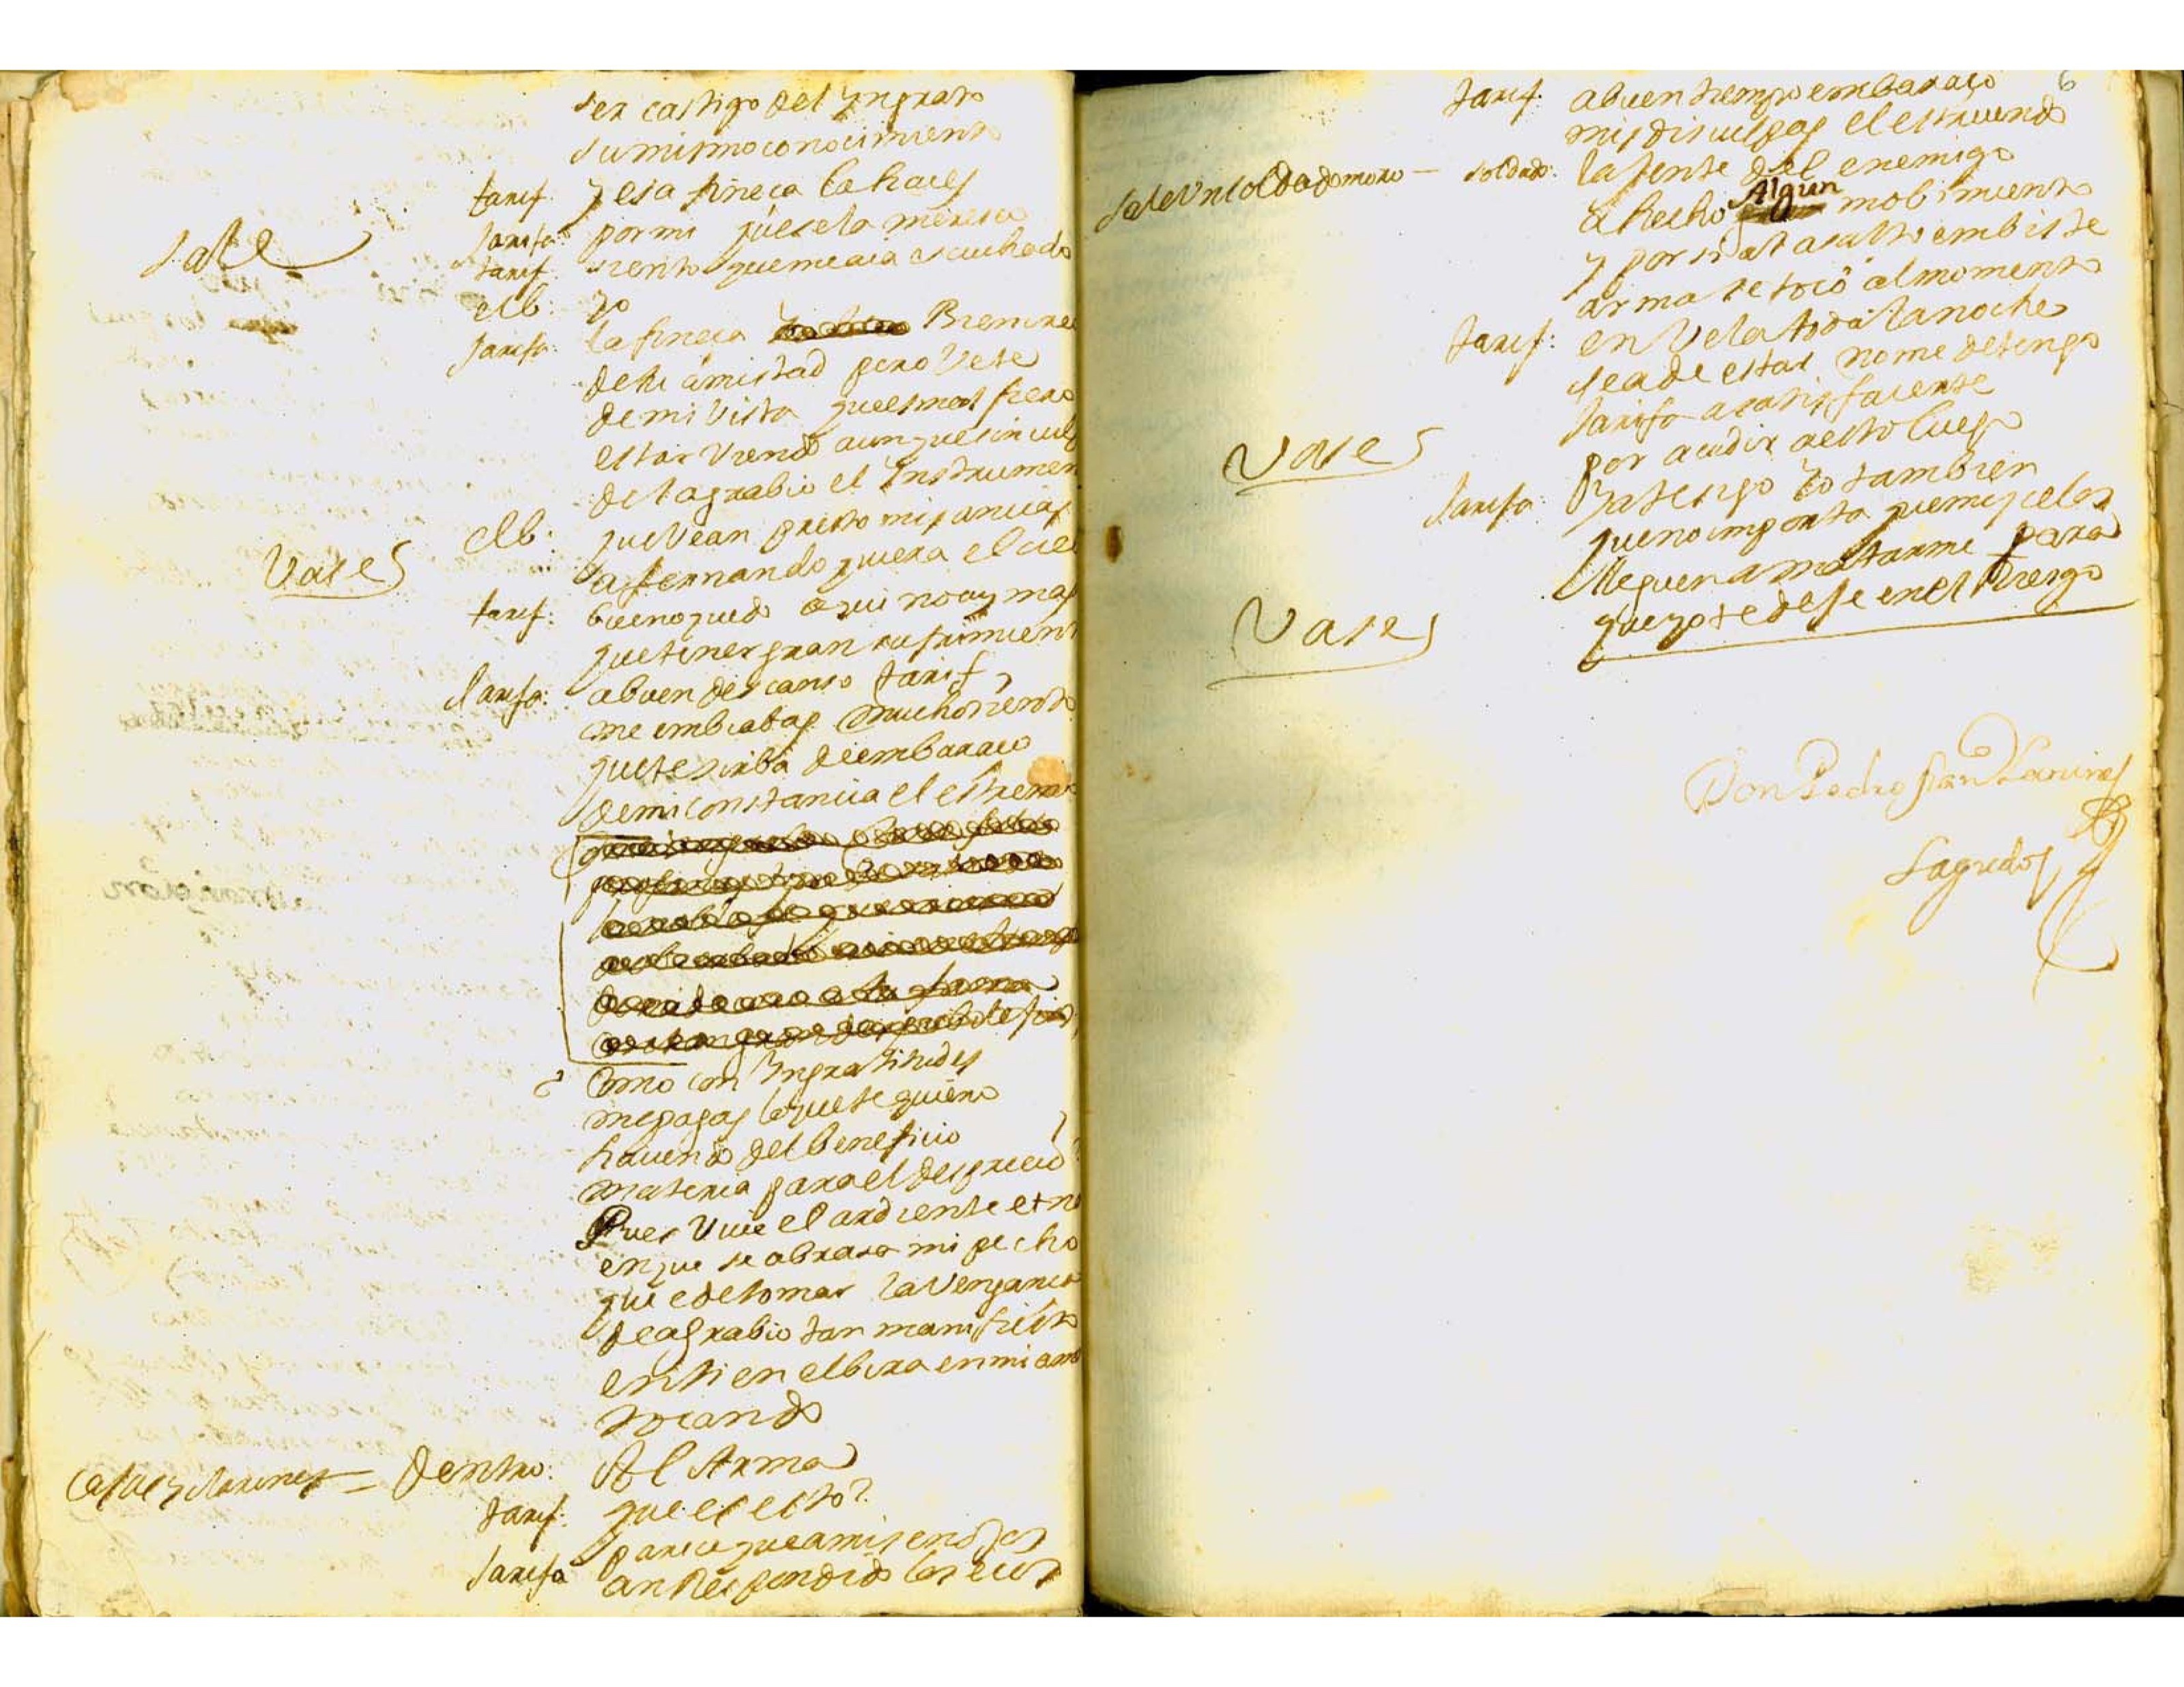 ser castigo del yngrato
su mismo conocimiento
tarif. y esa fineça la haces
Sale
Jarifa: por mi pues ela merezco
tarif. siento que me aia escuchado
elb: yo
Jarifa: la fineça Bien cree
de tu amistad pero Vete
de mi Vista que es mas fiero
estar Viendo aunque sin culp
del agrabio el Ynstrumen
elb: que Vean presto mis ancias
Vase
a fernando quiera el cie
tarif: bueno quedo aqui no ay mas
que tener gran sufrimient
Jarifa: a buen descanso tarif
me embiabas mucho siento
que te sirba de embaraço
de mi constancia el estremo
Como con Yngratitudes
me pagas lo que te quiero
haciendo del beneficio
materia para el desprecio
Pues Viue el ardiente etn
en que se abrasa mi pecho
que e de tomar la Vengança
de agrabio tan manifiesto
en ti en elbira en mi amo
tocando
Cajas y clarines = dentro: Al Arma
tarif: que es esto?
Jarifa parece que a mis enojos
an Respondido los ecos
6
tarif: a buen tiempo embaraço
mis disculpas el estruendo
Sale Un soldado moro — soldado: la jente del enemigo
a hecho Algun mobimiento
y por si al asalto embiste
arma se toco al momento
tarif: en Vela toda la noche
se a de estar no me detengo
Jarifa a satisfacerte
Vase
por acudir a esto luego
Jarifa: Ya tengo Yo tambien
que no importa que mis celos
lleguen a matarme para
que yo te deje en el Riesgo
Vase
Don Pedro fran Lanines
Sagredo